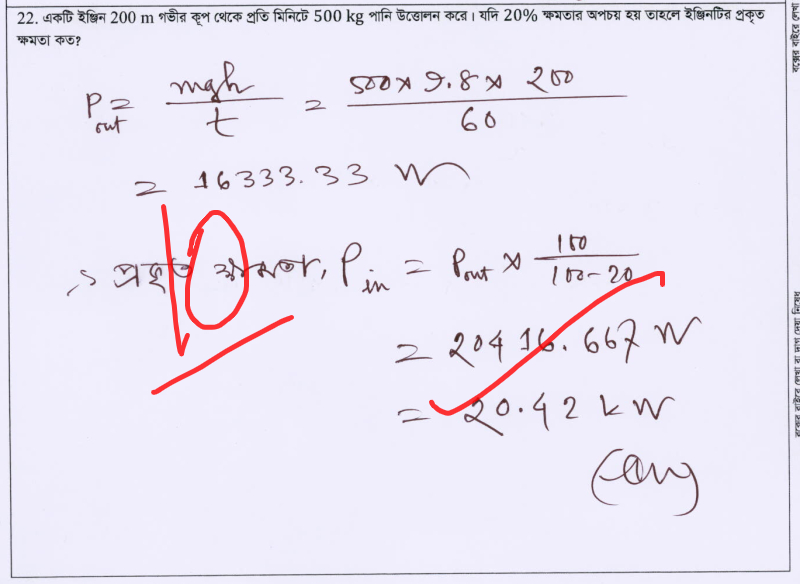 22. একটি ইঞ্জিন 200 m গভীর কূপ থেকে প্রতি মিনিটে 500 kg পানি উত্তোলন করে। যদি 20% ক্ষমতার অপচয় হয় তাহলে ইঞ্জিনটির প্রকৃত
ক্ষমতা কত?
P_out = mgh / t = 500 × 9.8 × 200 / 60
= 16333.33 W
∴ প্রকৃত ক্ষমতা, P_in = P_out × 100 / 100-20
= 20416.667 W
= 20.42 kW
(Ans)
10